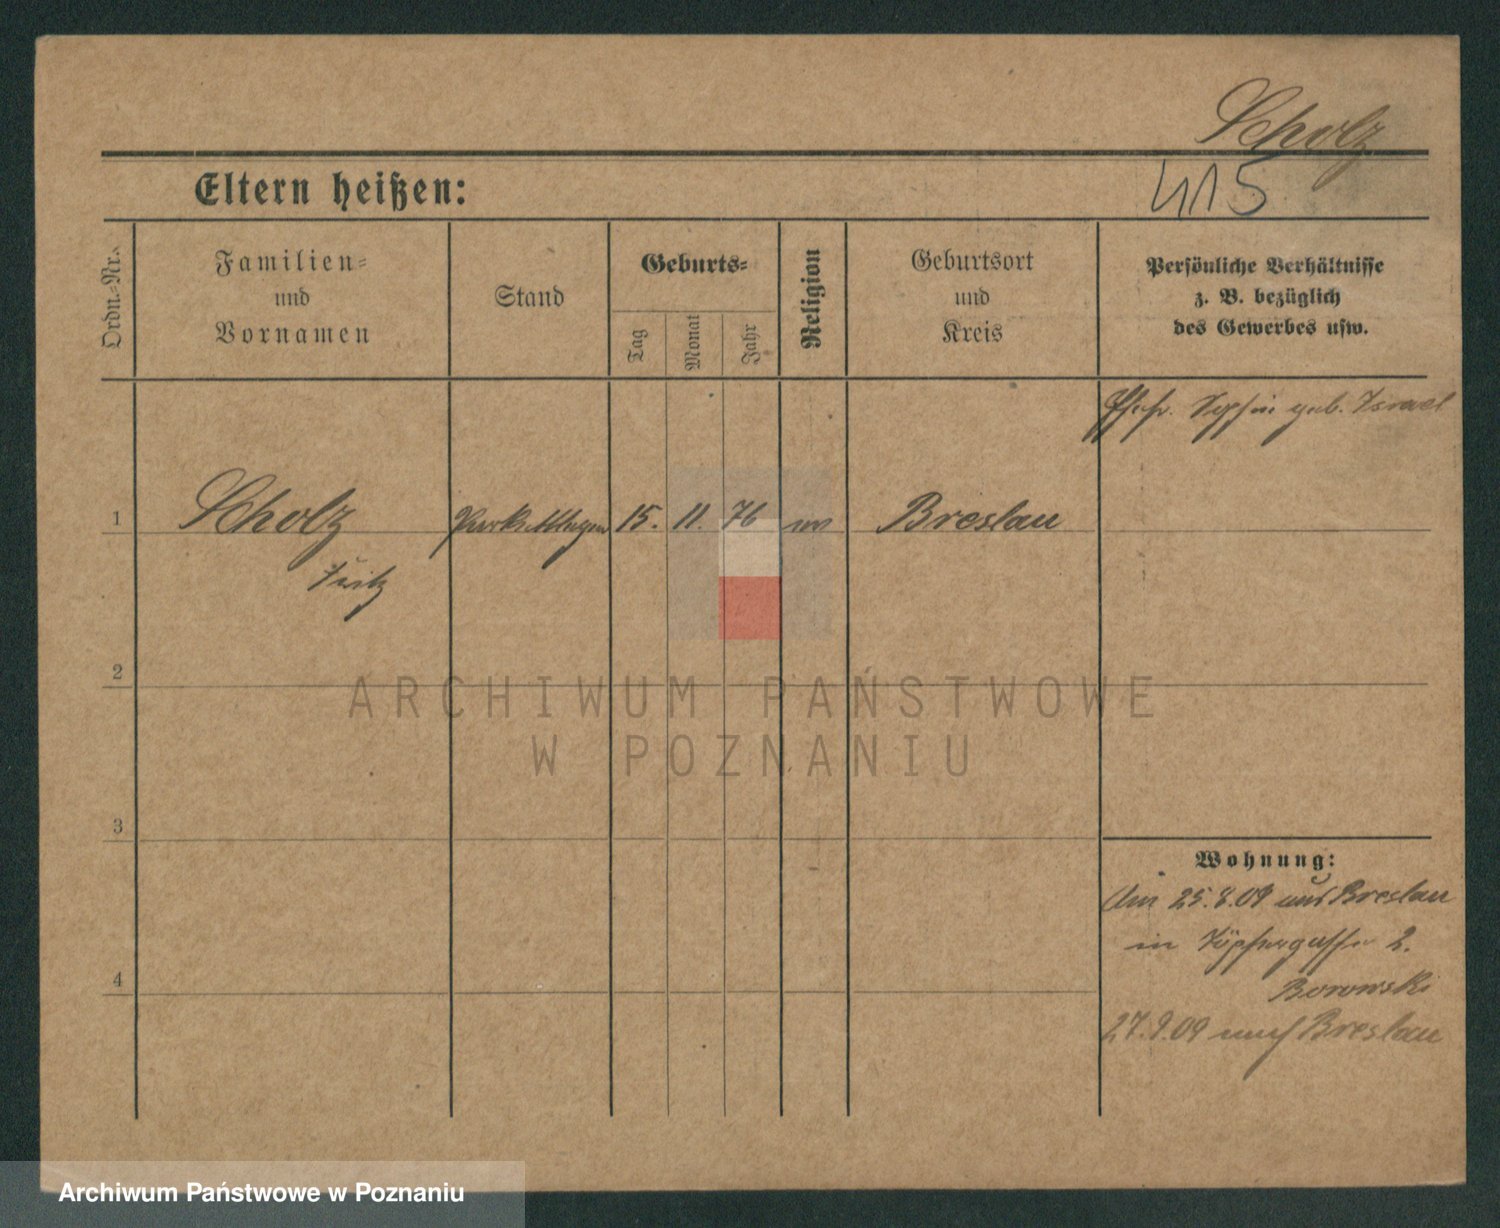 Scholz
415
Eltern heißen:
Ordn.-Nr.
Familien-
und
Vornamen
Stand
Geburts-
Tag
Monat
Jahr
Religion
Geburtsort
und
Kreis
Persönliche Verhältnisse
z. B. bezüglich
des Gewerbes usw.
geb. Israel
1
Scholz
15. 11. 76
Breslau
Fritz
2
3
4
Wohnung:
Am 25.8.09 aus Breslau
in Töpfergasse 2.
Borowski
27.9.09 nach Breslau
ARCHIWUM PAŃSTWOWE
W POZNANIU
Archiwum Państwowe w Poznaniu